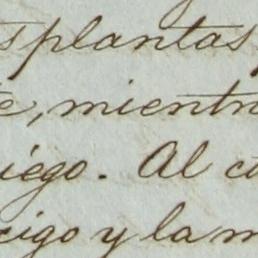 s plantas
te, mientra
iego. Al c
igo y la m